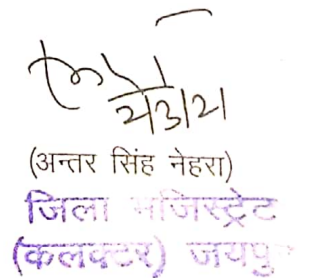 (अन्तर सिंह नेहरा)
जिला मजिस्ट्रेट
(कलक्टर) जयपु